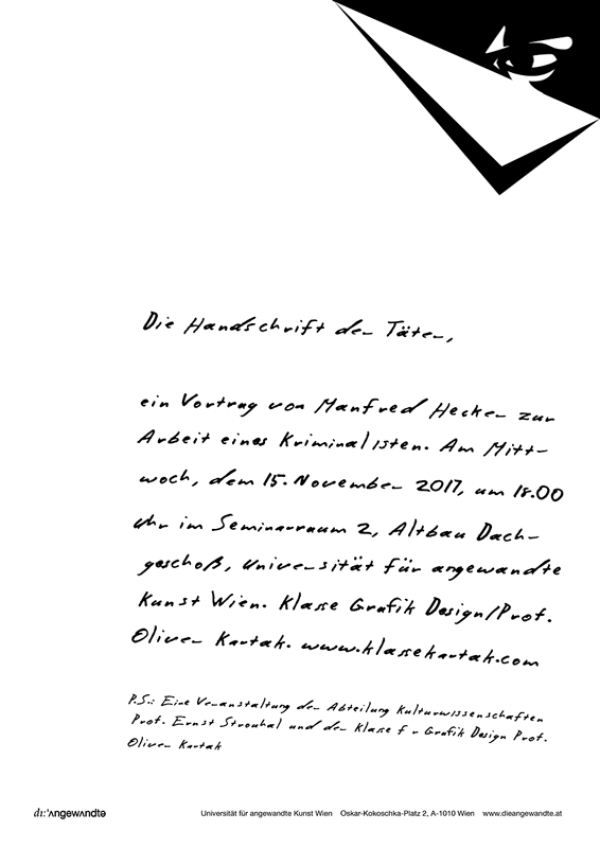 Die Handschrift der Täter,
ein Vortrag von Manfred Hecker zur
Arbeit eines Kriminalisten. Am Mitt-
woch, dem 15. November 2017, um 18.00
Uhr im Seminarraum 2, Altbau Dach-
geschoß, Universität für angewandte
Kunst Wien. Klasse Grafik Design/Prof.
Oliver Kartak. www.klassekartak.com
P.S.: Eine Veranstaltung der Abteilung Kulturwissenschaften
Prof. Ernst Strouhal und der Klasse f r Grafik Design Prof.
Oliver Kartak
dı:'ʌngewʌndtə
Universität für angewandte Kunst Wien Oskar-Kokoschka-Platz 2, A-1010 Wien www.dieangewandte.at